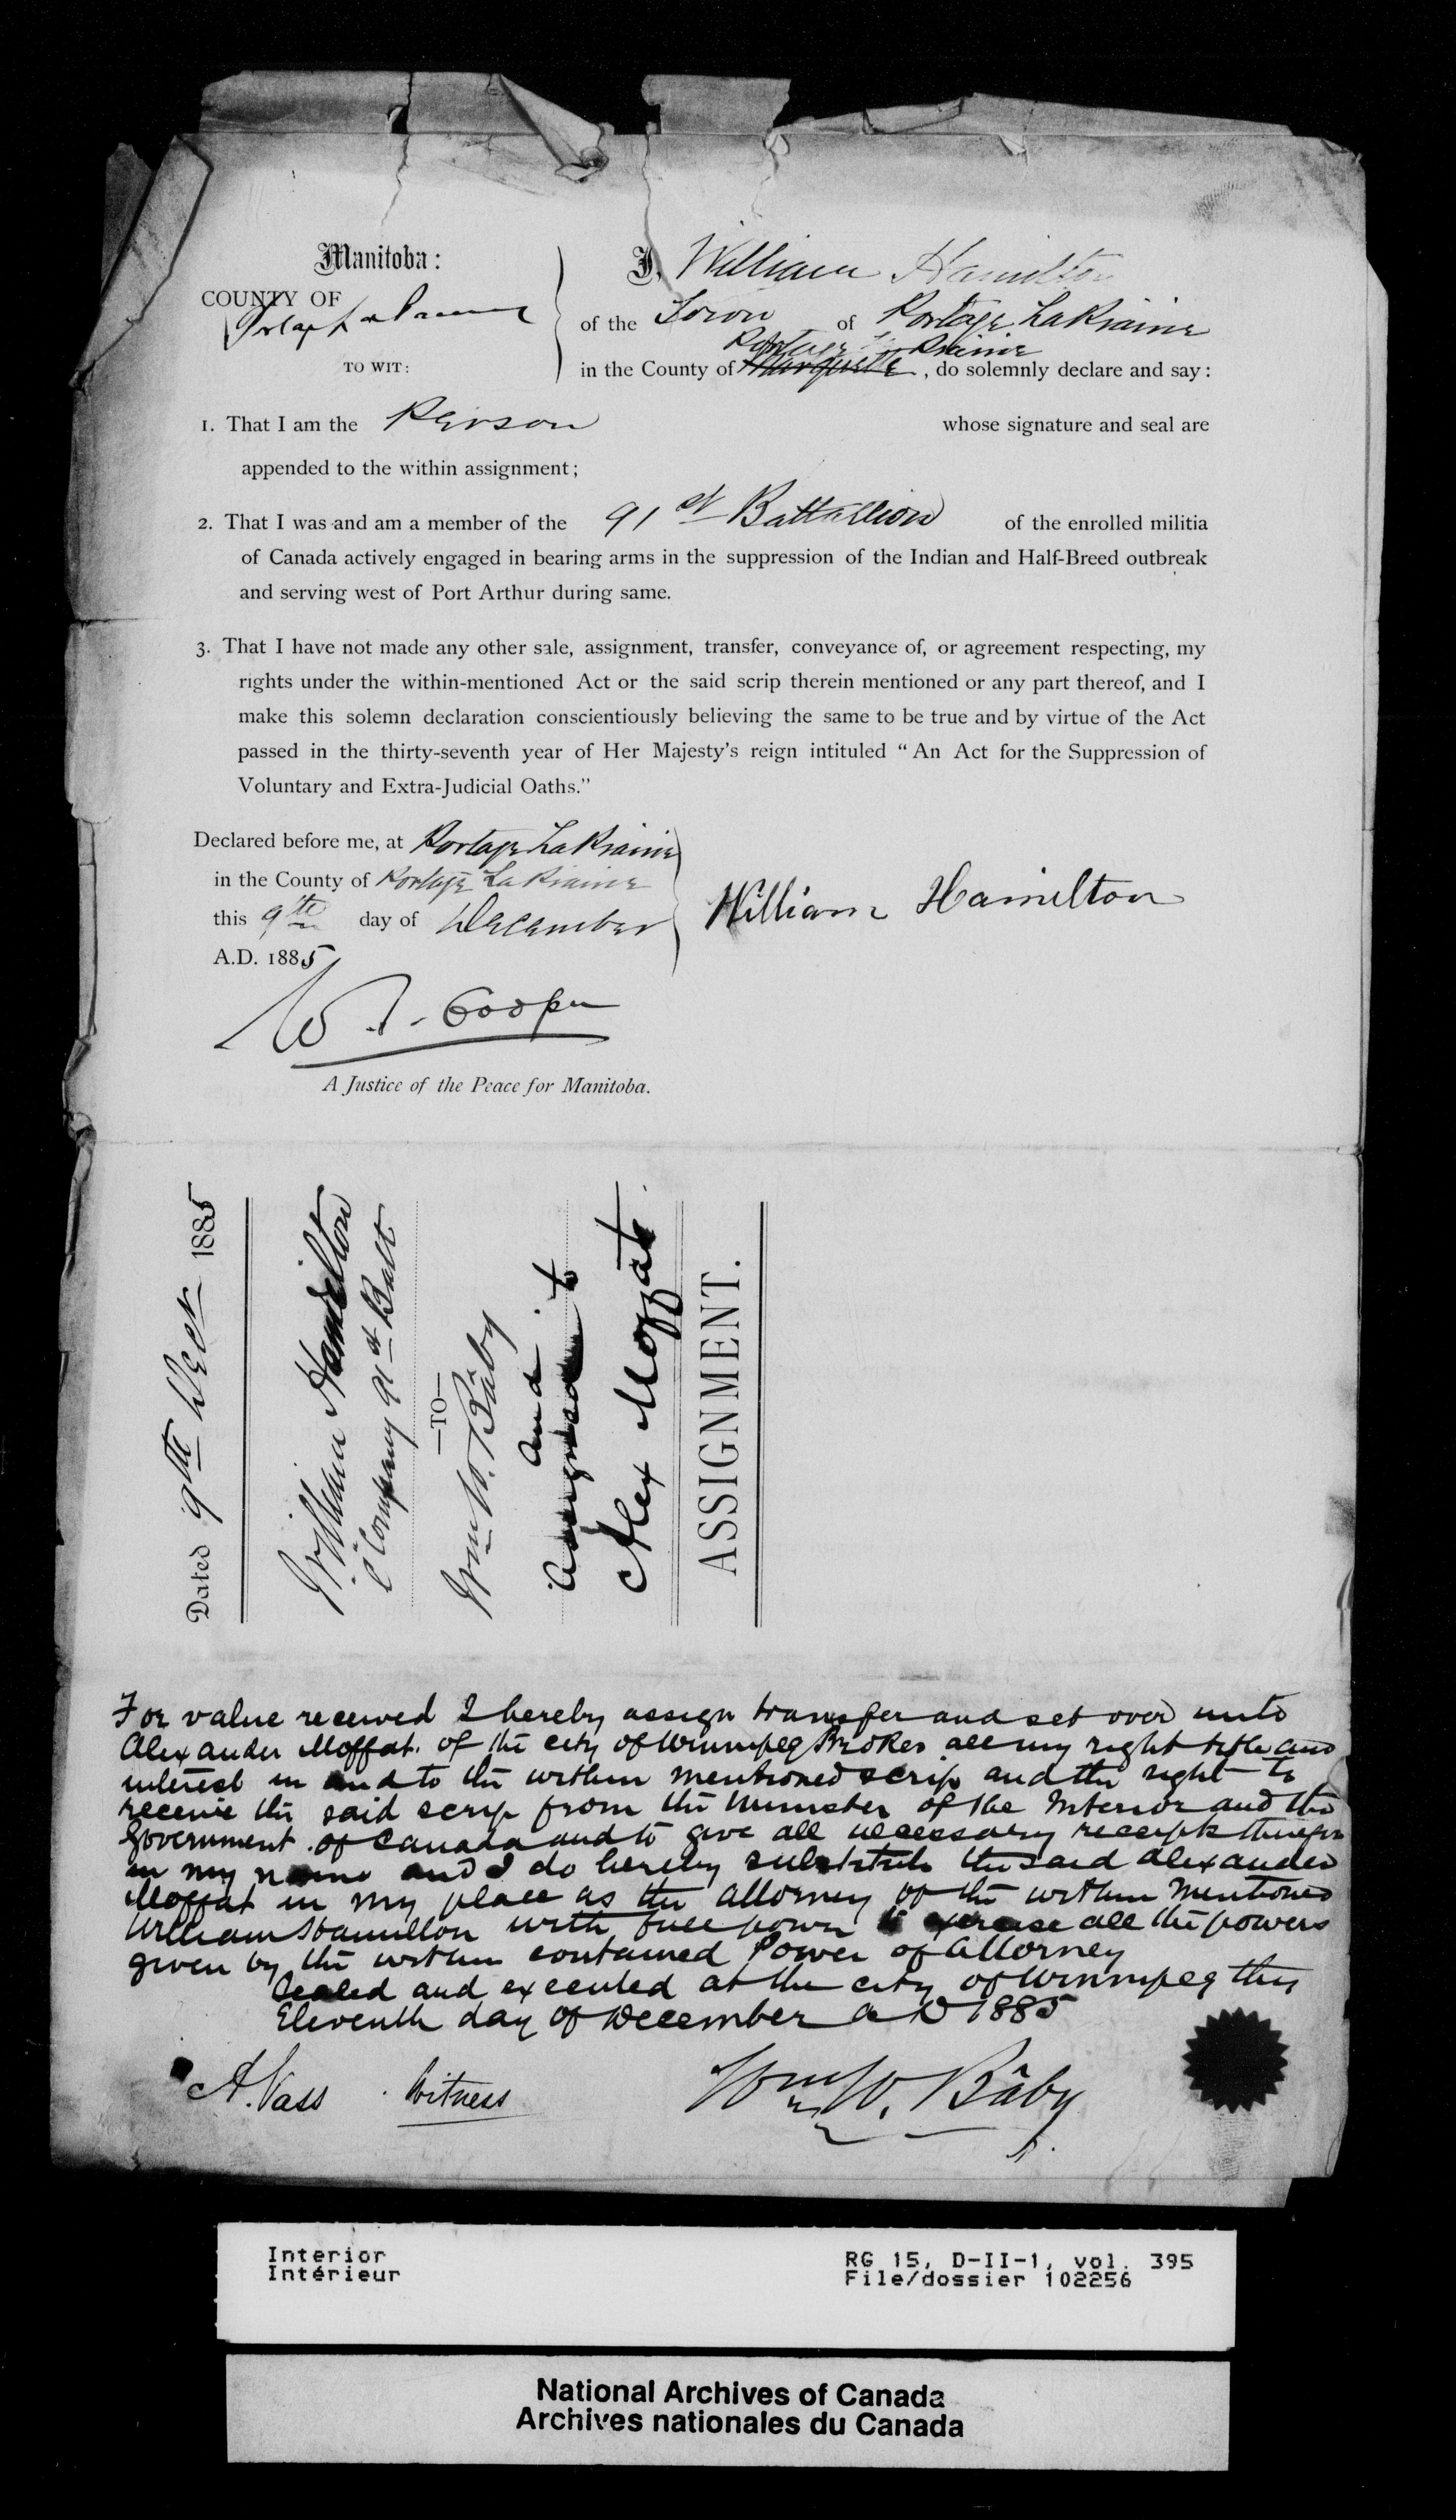 Manitoba:
COUNTY OF
Portage La Prairie
TO WIT:
I, William Hamilton
of the Town of Portage La Prairie
Portage La Prairie
in the County of Marquette, do solemnly declare and say:
1. That I am the Person whose signature and seal are
appended to the within assignment;
2. That I was and am a member of the 91st Battallion of the enrolled militia
of Canada actively engaged in bearing arms in the suppression of the Indian and Half-Breed outbreak
and serving west of Port Arthur during same.
3. That I have not made any other sale, assignment, transfer, conveyance of, or agreement respecting, my
rights under the within-mentioned Act or the said scrip therein mentioned or any part thereof, and I
make this solemn declaration conscientiously believing the same to be true and by virtue of the Act
passed in the thirty-seventh year of Her Majesty's reign intituled "An Act for the Suppression of
Voluntary and Extra-Judicial Oaths."
Declared before me, at Portage La Prairie
in the County of Portage La Prairie
this 9th day of December
A.D. 1885
William Hamilton
Cooper
A Justice of the Peace for Manitoba.
Dated 9th Decr 1885
William Hamilton
C Company 91st Batt
—TO—
Wm W. Bâby
and
assigned to
Alex Moffat
ASSIGNMENT.
For value received I hereby assign transfer and set over unto
Alexander Moffat of the city of Winnipeg Broker all my right title and
interest in and to the within mentioned scrip and the right to
receive the said scrip from the Minister of the Interior and the
Government of Canada and to give all necessary receipts therefor
in my name and I do hereby substitute the said Alexander
Moffat in my place as the attorney of the within mentioned
William Hamilton with full power to exercise all the powers
given by the within contained Power of Attorney
Sealed and executed at the city of Winnipeg this
Eleventh day of December A D 1885
A. Vass Witness
Wm W. Bâby
Interior
Intérieur
RG 15, D-II-1, vol. 395
File/dossier 102256
National Archives of Canada
Archives nationales du Canada